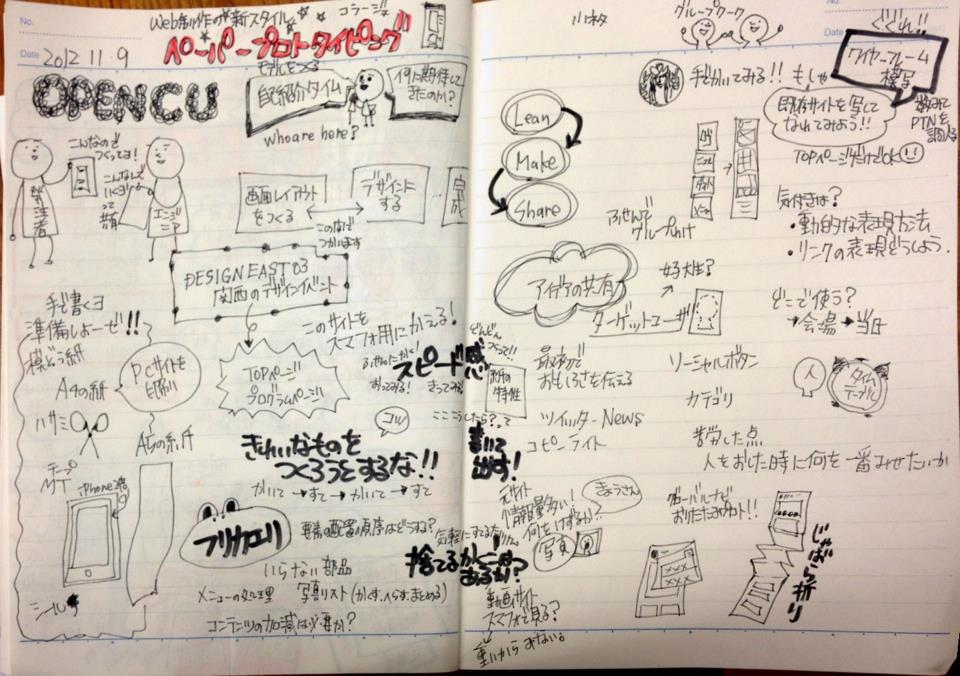 No.
Date 2012 11・9
Web制作の新スタイル
コラージュ
ペーパープロトタイピング
OPENCU
モデルをつくる
自己紹介タイム
何に期待して
きたのか?
who are here?
こんなので
つくってヨ!
発注者
エンジニア
画面レイアウト
をつくる
デザインに
する
完成
この間で
つかいます
DESIGN EAST 03
関西のデザインイベント
手で書くヨ
準備しよーぜ!!
模ぞう紙
A4の紙
PCサイトを
印刷
ハサミ
A5の紙
テープ
MT
iPhone
シール
このサイトを
スマフォ用にかえる!
TOPページ
プログラムページ
スピード感
どんどん
つくって!!
紙の
特性
コツ
きれいなものを
つくろうとするな!!
かいて→すて→かいて→すて
書いて
出す!
フリカエリ
要素の配置の順序はどうする?
いらない部品
メニューの処理
写真リスト(かくす、へらす、まとめる)
コンテンツの加減は必要か?
捨てるかくごは
あるか?
グループワーク
No.
Date
Lean
Make
Share
手でかいてみる!!
ふせんで
グループわけ
ワイヤーフレーム
模写
既存サイトを写して
なれてみよう!!
PTNを
調べる
TOPページだけでOK
気付きは?
・動的な表現方法
・リンクの表現どうしよう。
アイデアの共有
ターゲットユーザ
どこで使う?
→会場→当日
おもしろさを伝える
ソーシャルボタン
カテゴリ
人
タイム
テーブル
ツイッター News
コピーライト
苦労した点
人をおした時に何を一番みせたいか
元サイト
情報量多い!
何をけずるか?
きょうさん
写真
グローバルナビ
じゃばら折り
動画サイト
スマフォで見る?
重いからみない。